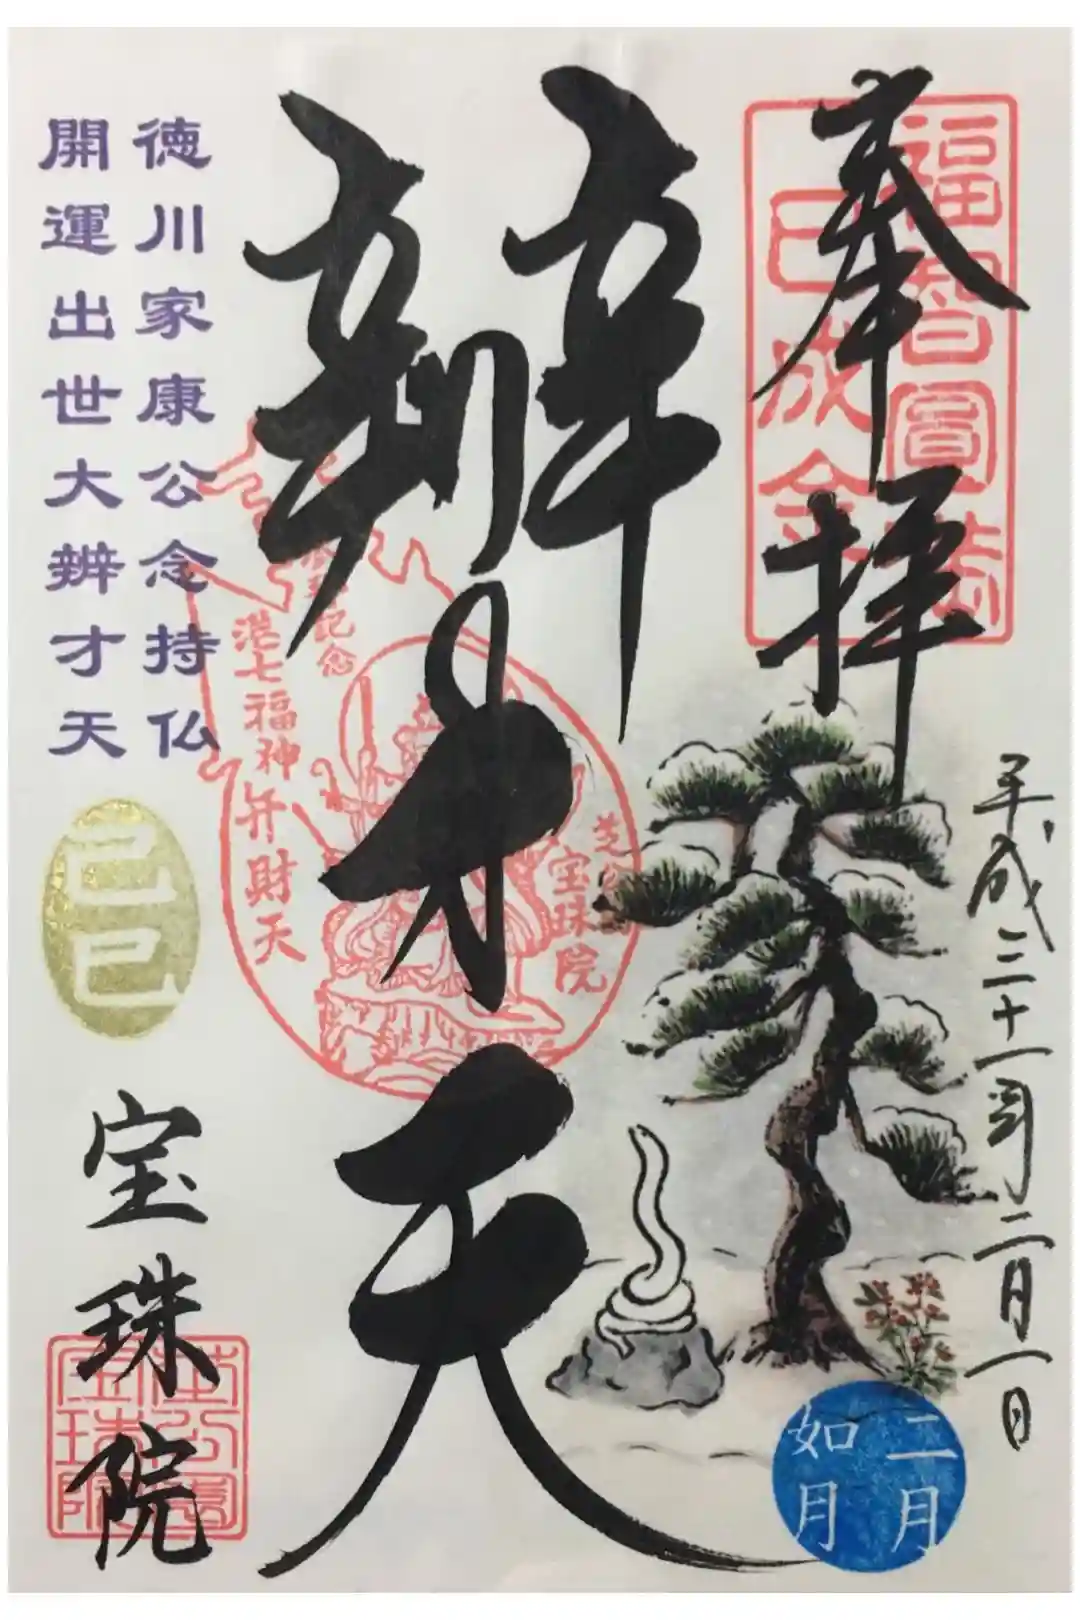 奉拝
福智圓満
巳成金
平成三十一年二月一日
辨才天
港七福神弁財天
芝公園
宝珠院
記念
徳川家康公念持仏
開運出世大辨才天
己巳
宝珠院
芝公園
宝珠院
二月
如月